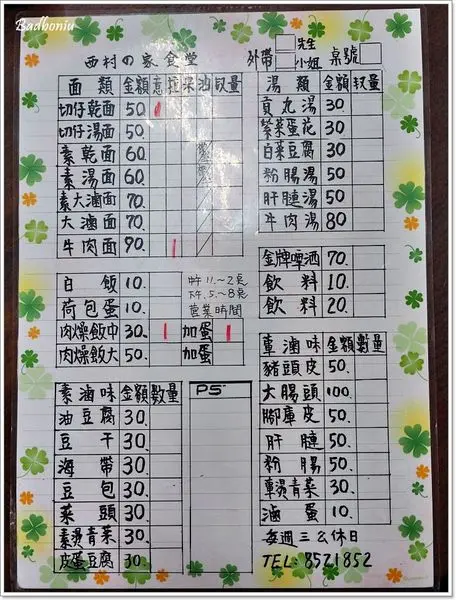 Badboniu
西村の家食堂
外帶 先生 小姐 桌號
面類 金額 意 粒 米 油 数量
切仔乾面 50.
切仔湯面 50.
素乾面 60.
素湯面 60.
素大滷面 70.
大滷面 70.
牛肉面 90.
湯類 金額 数量
貢丸湯 30
紫菜蛋花 30
白菜豆腐 30
粉腸湯 50
肝腱湯 50
牛肉湯 80
白飯 10.
荷包蛋 10.
肉燥飯中 30. 加蛋
肉燥飯大 50. 加蛋
中午11.~2点
下午.5~8点
营業時間
金牌啤酒 70.
飲料 10.
飲料 20.
素滷味 金額 数量
油豆腐 30.
豆干 30.
海帶 30.
豆包 30.
菜頭 30.
素燙青菜 30.
皮蛋豆腐 30.
PS
葷滷味 金額 數量
豬頭皮 50.
大腸頭 100.
腳庫皮 50.
肝腱 50.
粉腸 50.
葷燙青菜 30.
滷蛋 10.
每週三公休日
TEL:8521852